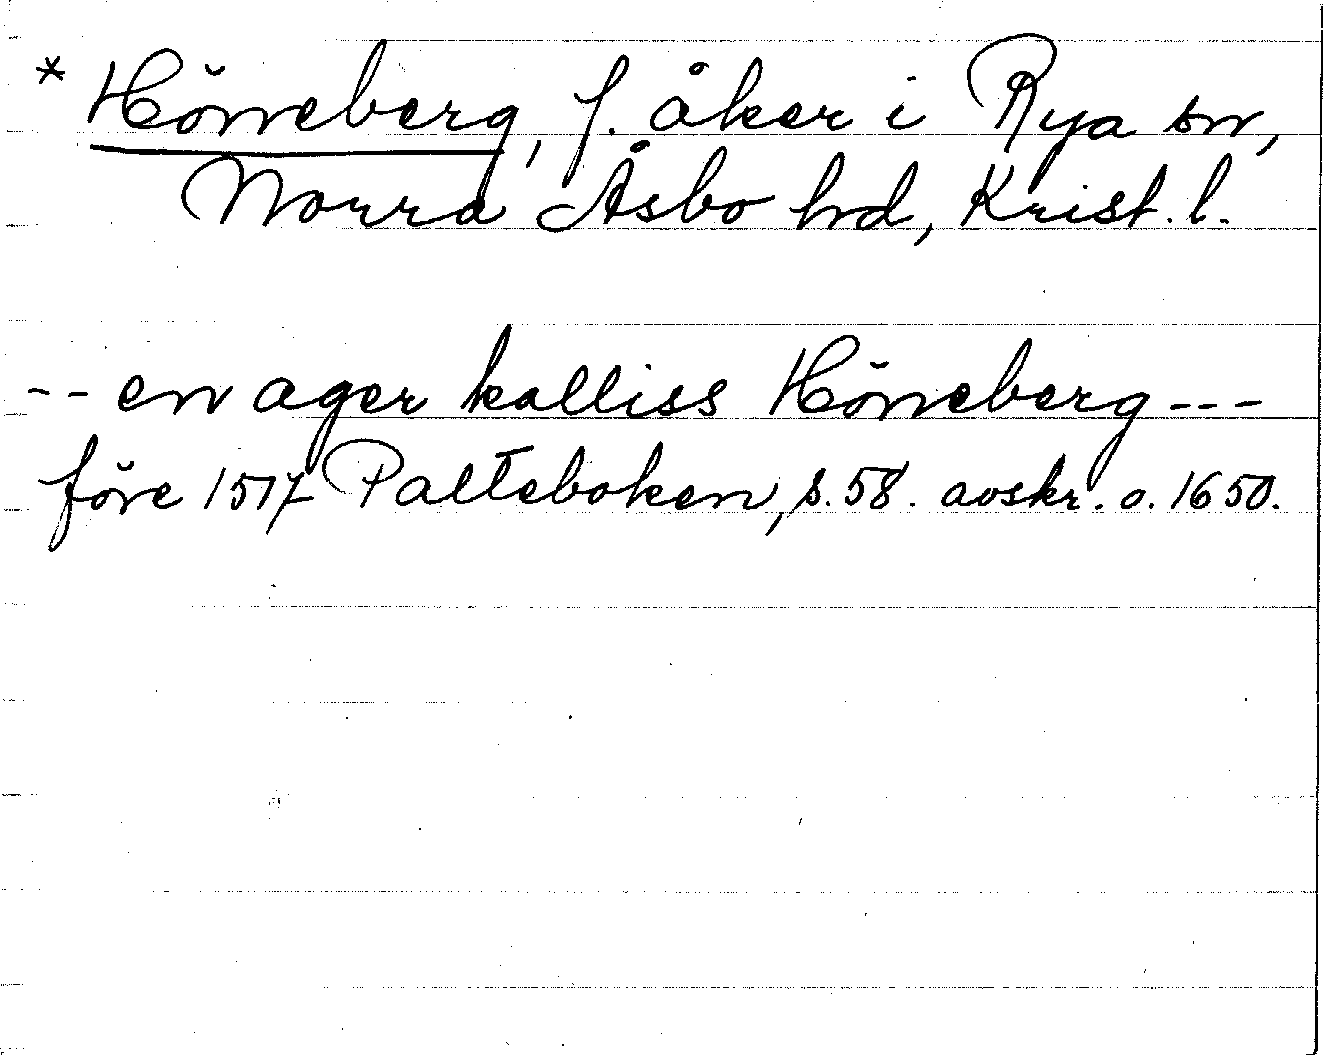 * Höneberg, f. åker i Rya sn,
Norra Åsbo hd, Krist. l.
-- en ager kalliss Höneberg ---
före 1517 Palteboken, s. 58. avskr. o. 1650.